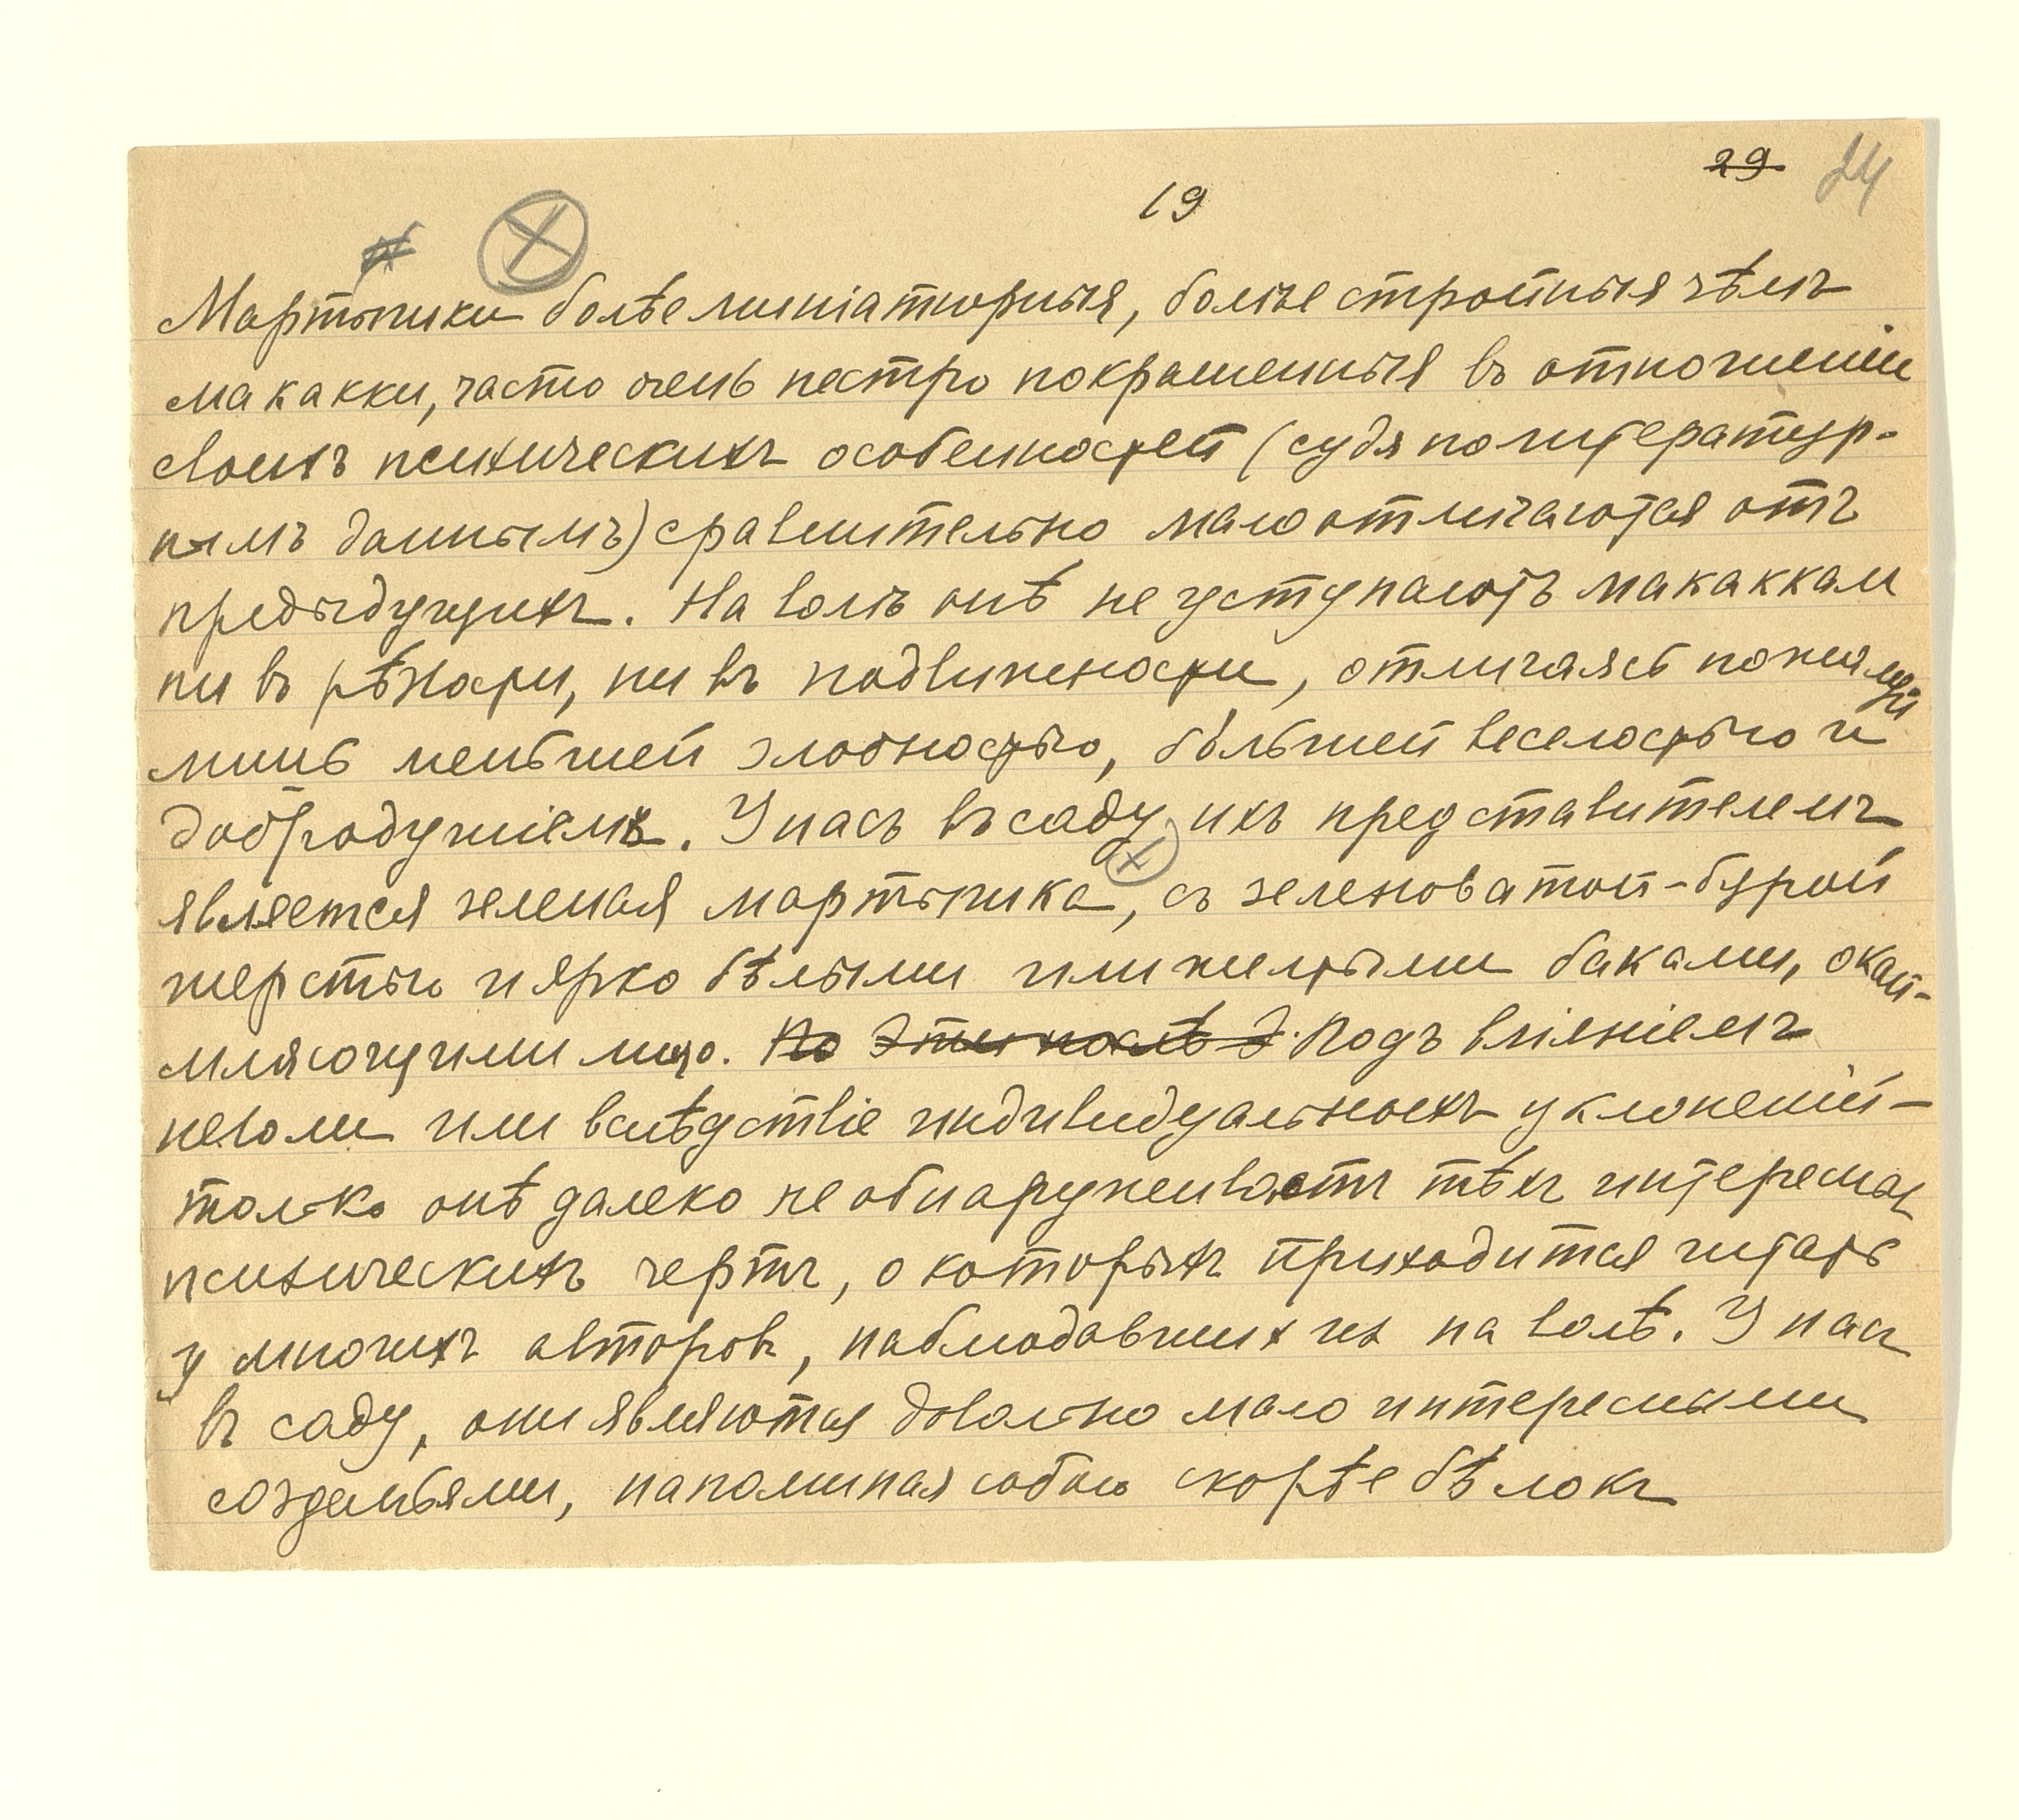 29 24
19
Мартышки болѣе миніатюрныя, болѣе стройныя чѣмъ
макакки, часто очень пестро покрашенныя въ отношеніи
своихъ психическихъ особенностей (судя по литератур-
нымъ даннымъ) сравнительно мало отличаются отъ
предыдущихъ. На волѣ онѣ не уступаютъ макаккам
ни въ рѣзости, ни въ подвижности, отличаясь пожалуй
лишь меньшей злобностью, большей веселостью и
добродушіемъ. У насъ въ саду ихъ представителемъ
является зеленая мартышка, съ зеленоватой-бурой
шерстью и ярко бѣлыми или желтыми баками, окай-
мляющими лицо. По Эти послѣ Э. Подъ вліяніемъ
неволи или вслѣдствіе индивидуальныхъ уклоненій –
только онѣ далеко не обнаруживаютъ тѣхъ интересных
психическихъ чертъ, о которыхъ приходится читать
у многихъ авторовъ, наблюдавших их на волѣ. У насъ
въ саду, они являются довольно мало интересными
созданьями, напоминая собою скорѣе бѣлокъ